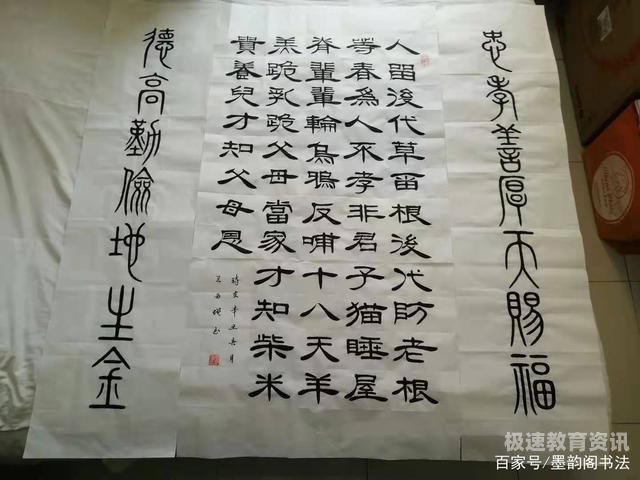 忠孝善厚天賜福
人留後代草留根後代防老根
等春為人不孝非君子猫睡屋
脊輩輩輪烏鴉反哺十八天羊
羔跪乳跪父母當家才知柴米
貴養兒才知父母恩
辛丑 月
德高勤儉地生金
极速教育资讯
百家号/墨韵阁书法